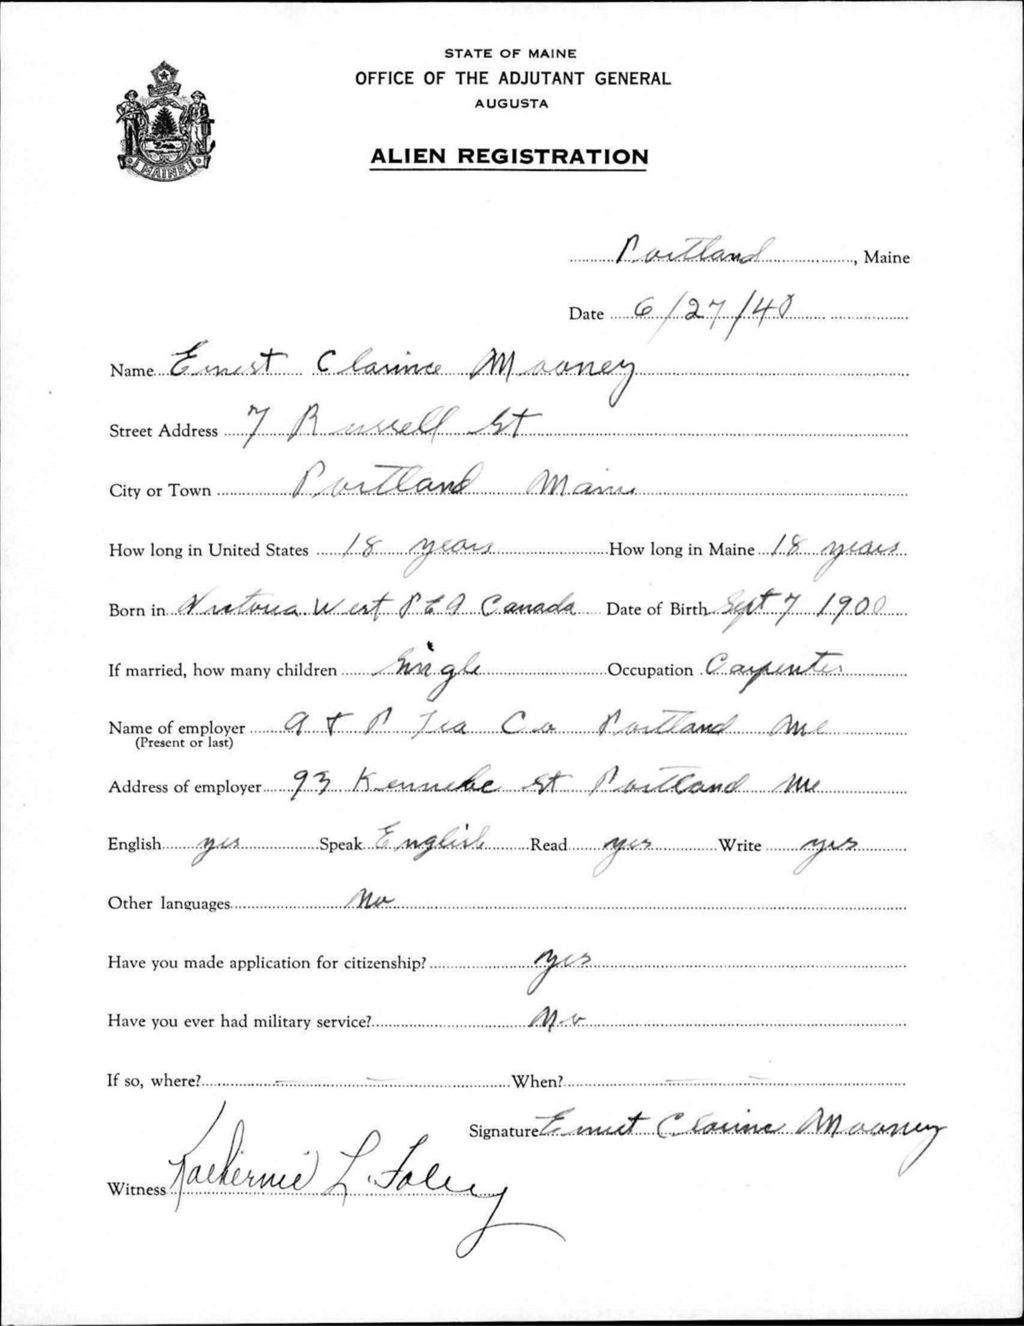 STATE OF MAINE
OFFICE OF THE ADJUTANT GENERAL
AUGUSTA
ALIEN REGISTRATION
MAINE
Portland, Maine
Date 6/27/40
Name Ernest Clarince Mooney
Street Address 7 Russell St
City or Town Portland Maine
How long in United States 18 years How long in Maine 18 years
Born in Victoria West P E I Canada Date of Birth Sept 7 1900
If married, how many children Single Occupation Carpenter
Name of employer A & P Tea Co Portland Me
(Present or last)
Address of employer 93 Kennebec St Portland Me
English yes Speak English Read yes Write yes
Other languages No
Have you made application for citizenship? yes
Have you ever had military service? No
If so, where? — — When? — —
Signature Ernest Clarince Mooney
Witness Katherine L. Foley